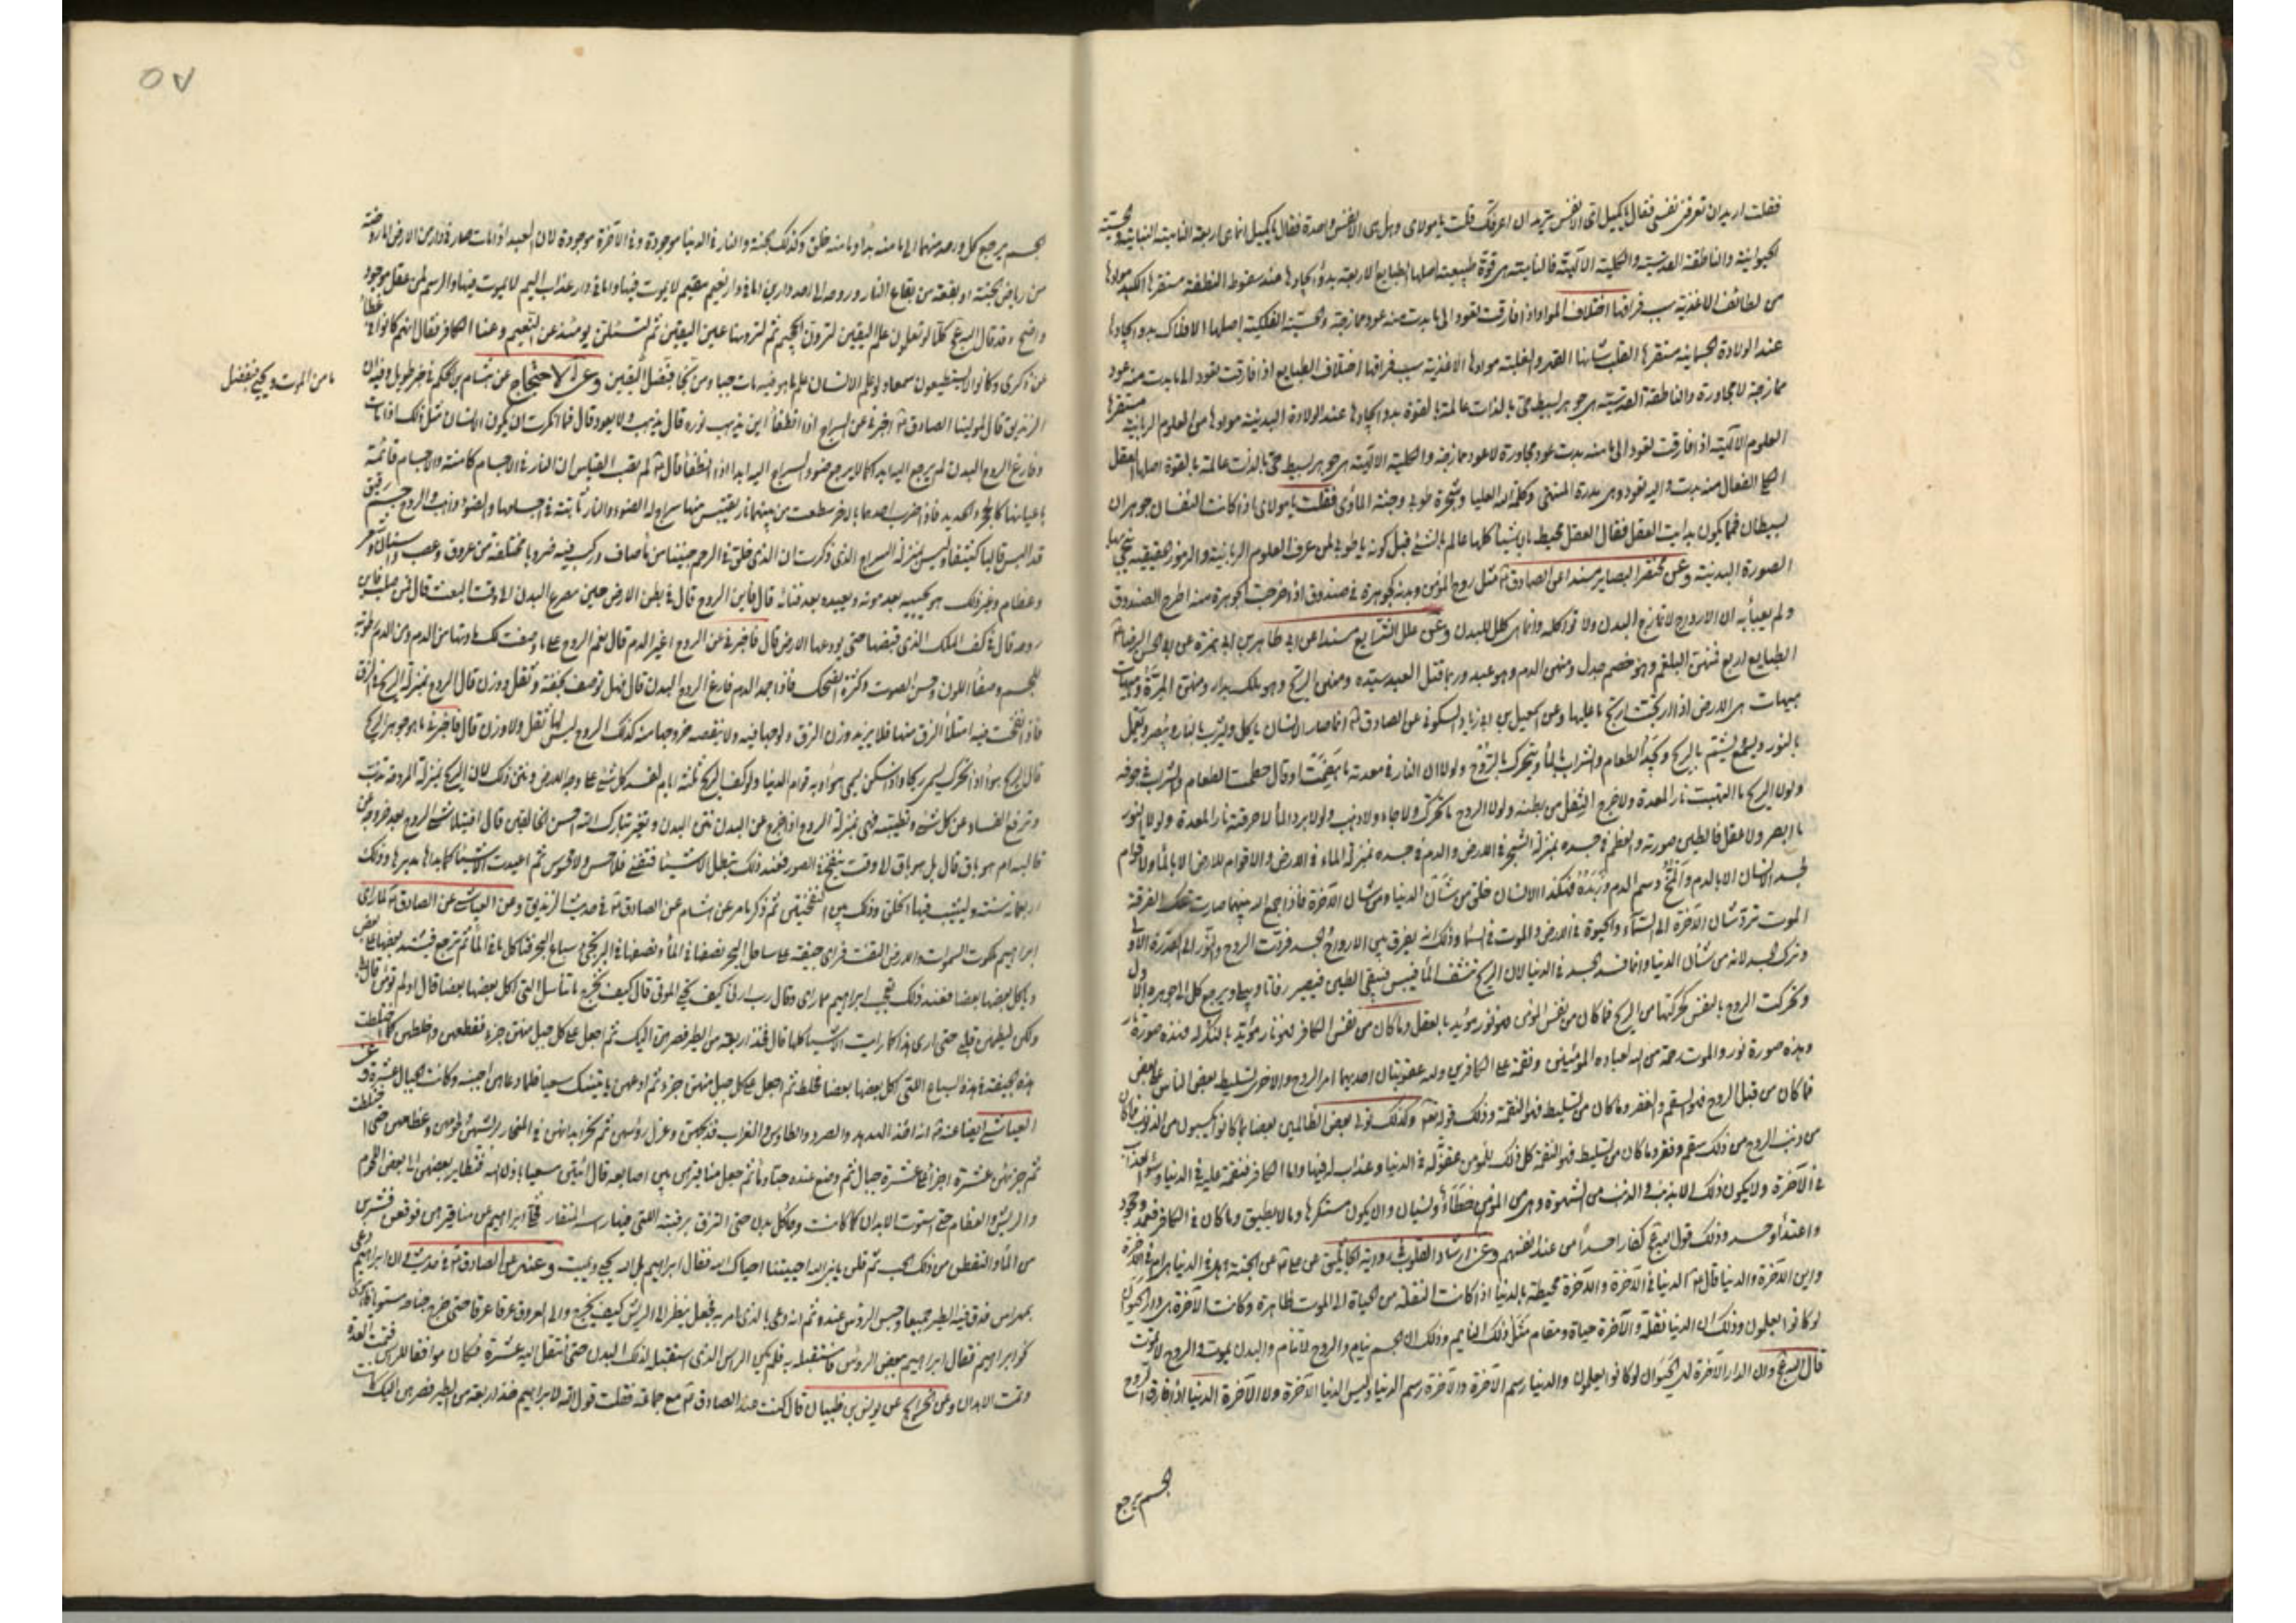 فقلت اريد ان تعرفنى نفسى فقال يا كميل اى الانفس تريد ان اعرفك قلت يا مولاى وهل هى الا نفس واحدة فقال يا كميل انما هى اربعة النامية النباتية والحسّية
الحيوانية والناطقة القدسية والكلية الالٓهية فالنامية هى قوة طبيعية اصلها الطبايع الاربعة بدؤ ايجادها عند سقوط النطفة مستقرها الكبد موادها
من لطائف الاغذية سبب فراقها اختلاف المواد اذا فارقت تعود الى ما بدت منه عود ممازجة والحسّية الفلكية اصلها الافلاك بدو ايجادها
عند الولادة الجسمانية مستقرها القلب شانها القهر والغلبة موادها الاغذية سبب فراقها اختلاف الطبايع اذا فارقت تعود الى ما بدت منه عود
ممازجة لا مجاورة والناطقة القدسية هى جوهر بسيط حى بالذات عالمة بالقوة بدو ايجادها عند الولادة البدنية موادها من العلوم الربانية مستقرها
العلوم الالٓهية اذا فارقت تعود الى ما منه بدت عود مجاورة لا عود ممازجة والكلية الالٓهية هى جوهر بسيط حى بالذات عالمة بالقوة اصلها العقل
الفعال منه بدت واليه تعود وهى سدرة المنتهى وكلمة الله العليا وشجرة طوبى وجنة المأوى فقلت يا مولاى اذا كانت النفسان جوهران
بسيطان فما يكون بدايت العقل فقال العقل محيط بالاشيا كلها عالم بالشئ قبل كونه يا طوبى لمن عرف العلوم الربانية والرموز الحقيقية
الصورة البدنية وعن مختصر البصاير مسندا عن الصادق ع مثل روح المؤمن وبدنه كجوهرة فى صندوق اذا خرجت الجوهرة منه اطرح الصندوق
ولم يعبأ به ان الارواح لا تمازج البدن ولا تواكله وانما هى كلل للبدن وعن علل الشرايع مسندا عن ابى طاهر بن ابى حمزة عن ابى الحسن الرضا ع
الطبايع اربع فمنهن البلغم وهو خصم جدل ومنهن الدم وهو عبد وربما قتل العبد سيده ومنهن الريح وهو ملك يدارى ومنهن المرّة وهيهات
هيهات هى الارض اذا ارتجّت ارتج ما عليها وعن اسمعيل بن ابى زياد السكونى عن الصادق ع انما صار الانسان ياكل ويشرب بالنار ويبصر ويعمل
بالنور ويسمع ويشم بالريح ويجد الطعام والشراب بالمأ ويتحرك بالرّوح ولولا ان النار فى معدته ما هضمت او قال حطمت الطعام والشراب فى جوفه
ولولا الريح ما التهبت نار المعدة ولا خرج الثفل من بطنه ولولا الروح ما تحرك ولا جاء ولا ذهب ولولا برد المأ لاحرقته نار المعدة ولولا النور
ما ابصر ولا عقل فالطين صورته والعظم فى جسده بمنزلة الشجر فى الارض والدم فى جسده بمنزلة الماء فى الارض ولا قوام للارض الا بالمأ ولا قوام
لجسد الانسان الا بالدم والمخّ دسم الدم وزبده فهكذا الانسان خلق من شأن الدنيا ومن شان الآخرة فاذا جمع الله بينهما صارت تلك الفرقة
الموت تردّ شان الآخرة الى السّماء والحيوة فى الارض والموت فى السما وذلك انه يفرق بين الارواح والجسد فردّت الروح والنور الى القدرة الاولى
وترك الجسد لانه من شأن الدنيا وانما فسد الجسد فى الدنيا لان الريح تنشف المأ فييبس فيبقى الطين فيصير رفاتا ويبلى ويرجع كل الى جوهره الاول
وتحركت الروح بالنفس حركتها من الريح فما كان من نفس المؤمن فهو نور مؤيد بالعقل وما كان من نفس الكافر فهو نار مؤيد بالنكراء فهذه صورة نار
وهذه صورة نور والموت رحمة من الله لعباده المؤمنين ونقمة على الكافرين ولله عقوبتان احديهما امر الروح والاخرى تسليط بعض الناس على بعض
فما كان من قبل الروح فهو السقم والفقر وما كان من تسليط فهو النقمة وذلك قوله تعه وكذلك نولى بعض الظالمين بعضا بما كانوا يكسبون من الذنوب فما كان
من ذنب الروح من ذلك سقم وفقر وما كان من تسليط فهو النقمة كل ذلك للمؤمن عقوبة له فى الدنيا وعذاب له فيها واما الكافر فنقمة عليه فى الدنيا وسؤ العذاب
فى الآخرة ولا يكون ذلك الا بذنب والذنب من الشهوة وهى من المؤمن خطاء ونسيان وان يكون مستكرها وما لا يطيق وما كان فى الكافر فعمد وجحود
واعتداء وحسد وذلك قول الله ع كفارا حسدا من عند انفسهم وعن ارشاد القلوب عن على ع عن الجنة هل فى الدنيا هى ام فى الآخرة
واين الآخرة والدنيا قال ع الدنيا فى الآخرة والآخرة محيطة بالدنيا اذا كانت النقلة من الحياة الى الموت ظاهرة وكانت الآخرة هى دار الحيوان
لو كانوا يعلمون وذلك ان الدنيا نقلة والآخرة حياة ومقام مثل ذلك النايم وذلك ان الجسم ينام والروح لا تنام والبدن يموت والروح لا يموت
قال الله ع وان الدار الآخرة لهى الحيوان لو كانوا يعلمون والدنيا رسم الآخرة والآخرة رسم الدنيا وليس الدنيا الآخرة ولا الآخرة الدنيا اذا فارق الروح
الجسم يرجع
٥٧
الجسم يرجع كل واحد منهما الى ما منه بدأ وما منه خلق وكذلك الجنة والنار فى الدنيا موجودة وفى الآخرة موجودة لان العبد اذا مات صار فى دار من الارض اما روضة
من رياض الجنة او بقعة من بقاع النار وروحه الى احد دارين اما فى دار نعيم مقيم لا يموت فيها واما فى دار عذاب اليم لا يموت فيها والرسم لمن عقل موجود
واضح وقد قال الله ع كلّا لو تعلمون علم اليقين لترونّ الجحيم ثم لترونها عين اليقين ثم لتسئلنّ يومئذ عن النعيم وعنا الكافر فقال انهم كانوا فى غطاء
عن ذكرى وكانوا لا يستطيعون سمعا ولو علم الانسان علم ما هو فيه مات حبا ومن نجا فبفضل اليقين وعن الاحتجاج عن هشام بن الحكم فى خبر طويل وفيه ان
الزنديق قال لمولينا الصادق ع اخبرنى عن السراج اذا انطفأ اين يذهب نوره قال يذهب ولا يعود قال فما انكرت ان يكون الانسان مثل ذلك اذا مات
وفارق الروح البدن لم يرجع اليه ابدا كما لا يرجع ضوء السراج اليه ابدا اذا انطفأ قال ع لم تصب القياس ان النار فى الاجسام كامنة والاجسام قائمة
باعيانها كالحجر والحديد فاذا ضرب احدهما بالاخر سطعت من بينهما نار يقتبس منها سراج له الضوء والنار ثابتة فى اجسامها والضوء ذاهب والروح جسم رقيق
قد البس قالبا كثيفا وليس بمنزلة السراج الذى ذكرت ان الذى خلق فى الرحم جنينا من ماء صاف وركب فيه ضروبا مختلفة من عروق وعصب واسنان وشعر
وعظام وغير ذلك هو يحييه بعد موته ويعيده بعد فنائه قال فاين الروح قال فى بطن الارض حيث مصرع البدن الى وقت البعث قال فمن صلب فاين
روحه قال فى كف الملك الذى قبضها حتى يودعها الارض قال فاخبرنى عن الروح اغير الدم قال نعم الروح على ما وصفت لك مادتها من الدم ومن الدم رطوبة
الجسم وصفأ اللون وحسن الصوت وكثرة الضحك فاذا جمد الدم فارق الروح البدن قال فهل توصف بخفة وثقل ووزن قال الروح بمنزلة الريح فى الزق
فاذا نفخت فيه امتلأ الزق منها فلا يزيد فى وزن الزق ولوجها فيه ولا ينقصه خروجها منه كذلك الروح ليس لها ثقل ولا وزن قال فاخبرنى ما جوهر الريح
قال الريح هواء اذا تحرك يسمى ريحا واذا سكن يسمى هواء وبه قوام الدنيا ولو كف الريح ثلثة ايام لفسد كل شئ على وجه الارض ونتن ذلك لان الريح بمنزلة المروحة تذبّ
وترفع الفساد عن كل شئ وتطيبه فهى بمنزلة الروح اذا خرج عن البدن نتن البدن وتغير تبارك الله احسن الخالقين قال افيتلاشى الروح بعد خروجه عن
قالبه ام هو باق قال بل هو باق الى وقت ينفخ فى الصور فعند ذلك تبطل الاشيا وتفنى فلا حس ولا محسوس ثم اعيدت الاشيا كما بدأها مدبرها وذلك
اربعمائة سنة يسبت فيها الخلق وذلك بين النفختين ثم ذكر ما مر عن هشام عن الصادق ع فى حديث الزنديق وعن العياشى عن الصادق ع لما راى
ابراهيم ملكوت السموات والارض التفت فراى جيفة على ساحل البحر نصفها فى المأ ونصفها فى البر تجئ سباع البحر فتاكل ما فى المأ ثم ترجع فيشد بعضها على بعض
وياكل بعضها بعضا فعند ذلك تعجب ابراهيم مما راى وقال رب ارنى كيف تحيى الموتى قال كيف تخرج ما تناسل التى اكل بعضها بعضا قال اولم تؤمن قال بلى
ولكن ليطمئن قلبى حتى ارى هذا كما رايت الاشيا كلها قال فخذ اربعة من الطير فصرهن اليك ثم اجعل على كل جبل منهن جزء فقطعهن واخلطهن كما اختلطت
هذه الجيفة فى هذه السباع التى اكل بعضها بعضا فخلط ثم اجعل على كل جبل منهن جزء ثم ادعهن ياتينك سعيا فلما دعاهن اجبنه وكانت الجبال عشرة وعن
العياشى ايضا عنه ع انه اخذ الهدهد والصرد والطاوس والغراب فذبحهن وعزل رؤسهن ثم نحز ابدانهن فى المنحاز بريشهن ولحومهن وعظامهن حتى اختلطت
ثم جزئهن عشرة اجزاء على عشرة جبال ثم وضع عنده حبا ومأ ثم جعل مناقيرهن بين اصابعه قال ائتينى سعيا باذن الله فتطاير بعضهن الى بعض اللحوم
والريش والعظام حتى استوت الابدان كما كانت وجاء كل بدن حتى التزق برقبته التى فيها راسه والمنقار فخلى ابراهيم عن مناقيرهن فوقعن فشربن
من المأ والتقطن من ذلك الحب ثم قلن يا نبى الله احييتنا احياك الله فقال ابراهيم بل الله يحيى ويميت وعنه عن الصادق ع فى حديث ان ابراهيم دعى
بمهراس فدق فيه الطير جميعا وحبس الرؤس عنده ثم انه دعى بالذى امر به فجعل ينظر الى الريش كيف يخرج والى العروق عرقا عرقا حتى خرج جناحه مستويا فاهوى
نحو ابراهيم فقال ابراهيم ببعض الرؤس فاستقبله به فلم يكن الراس الذى استقبل لذلك البدن حتى انتقل اليه غيره فكان موافقا للراس فتمت العدة
وتمت الابدان وعن الخرايج عن يونس بن ظبيان قال كنت عند الصادق ع مع جماعة فقلت قول الله لابراهيم خذ اربعة من الطير فصرهن اليك كانت